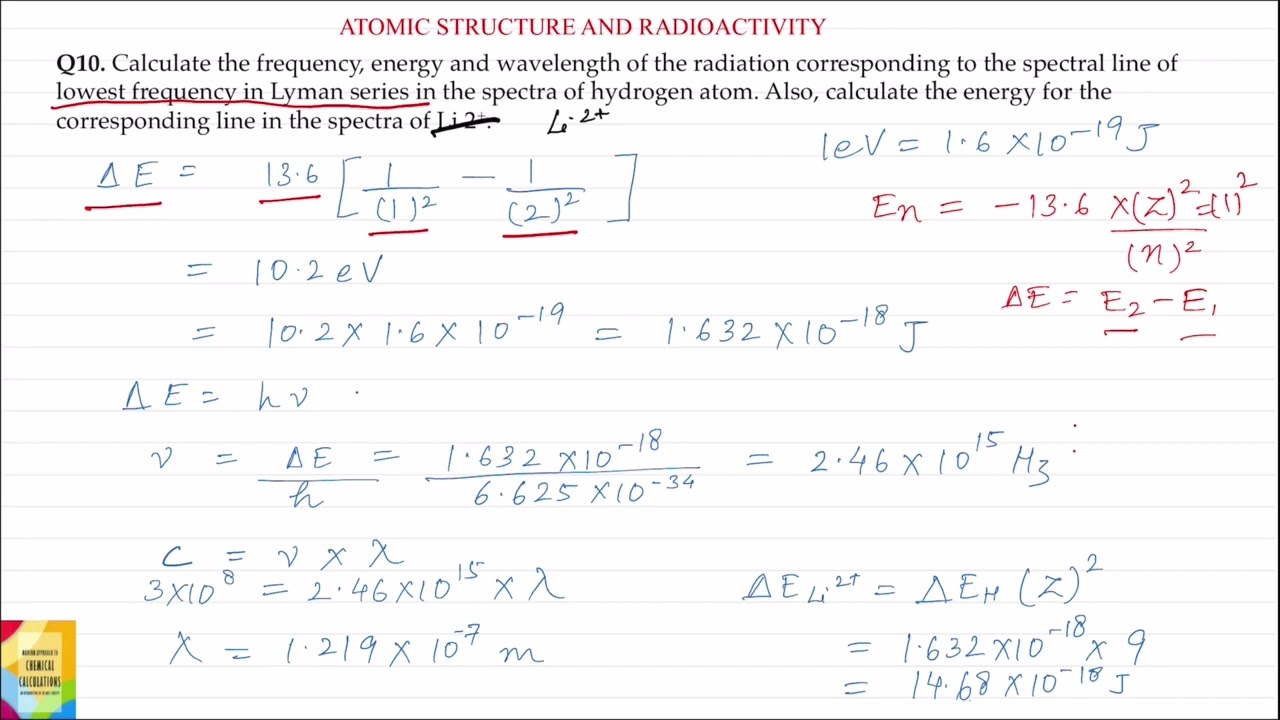 ATOMIC STRUCTURE AND RADIOACTIVITY
Q10. Calculate the frequency, energy and wavelength of the radiation corresponding to the spectral line of
lowest frequency in Lyman series in the spectra of hydrogen atom. Also, calculate the energy for the
corresponding line in the spectra of Li 2+. Li 2+
1eV = 1.6 × 10^-19 J
ΔE = 13.6 [ 1/(1)^2 − 1/(2)^2 ]
En = −13.6 × (Z)^2 = (1)^2 / (n)^2
= 10.2 eV
ΔE = E2 − E1
= 10.2 × 1.6 × 10^-19 = 1.632 × 10^-18 J
ΔE = hν
ν = ΔE/h = 1.632 × 10^-18 / 6.625 × 10^-34 = 2.46 × 10^15 Hz
C = ν × λ
3×10^8 = 2.46 × 10^15 × λ
λ = 1.219 × 10^-7 m
ΔE Li2+ = ΔEH (Z)^2
= 1.632 × 10^-18 × 9
= 14.68 × 10^-18 J
MODERN APPROACH TO
CHEMICAL
CALCULATIONS